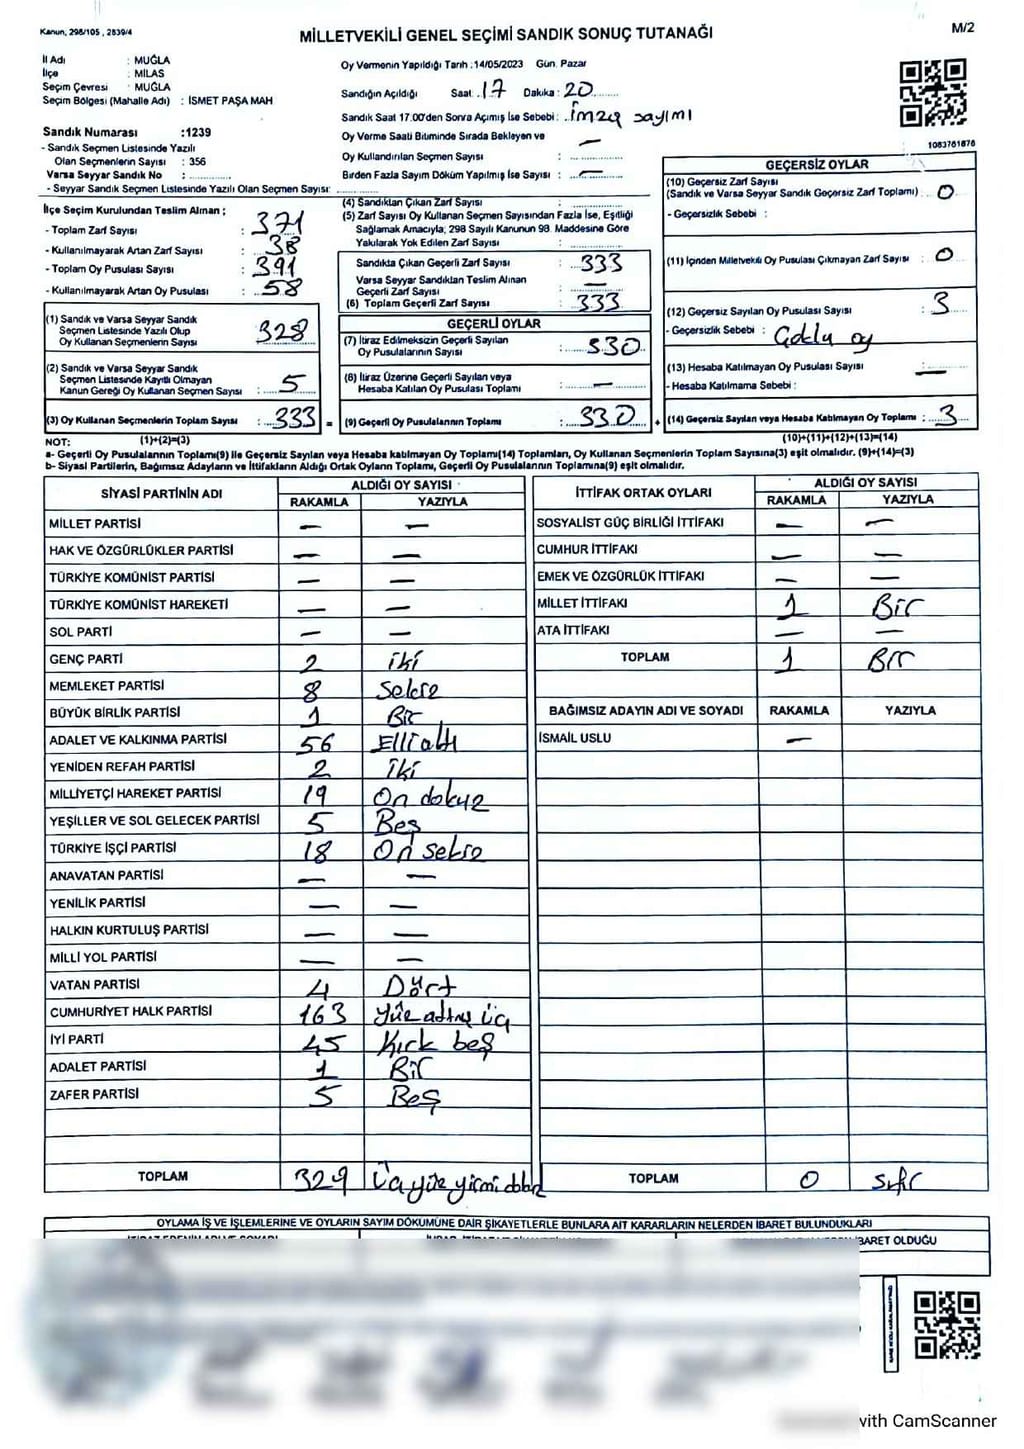 Kanun, 298/105 , 2839/4
MİLLETVEKİLİ GENEL SEÇİMİ SANDIK SONUÇ TUTANAĞI
M/2
İl Adı : MUĞLA
İlçe : MİLAS
Seçim Çevresi : MUĞLA
Seçim Bölgesi (Mahalle Adı) : İSMET PAŞA MAH
Sandık Numarası :1239
- Sandık Seçmen Listesinde Yazılı
Olan Seçmenlerin Sayısı : 356
Varsa Seyyar Sandık No :
- Seyyar Sandık Seçmen Listesinde Yazılı Olan Seçmen Sayısı:
Oy Vermenin Yapıldığı Tarih :14/05/2023 Gün. Pazar
Sandığın Açıldığı Saat: 17 Dakika : 20
Sandık Saat 17.00'den Sonra Açımış İse Sebebi : İmza sayımı
Oy Verme Saati Bitiminde Sırada Bekleyen ve
Oy Kullandırılan Seçmen Sayısı : —
Birden Fazla Sayım Döküm Yapılmış İse Sayısı : —
1083761876
İlçe Seçim Kurulundan Teslim Alınan ;
- Toplam Zarf Sayısı : 371
- Kullanılmayarak Artan Zarf Sayısı : 38
- Toplam Oy Pusulası Sayısı : 391
- Kullanılmayarak Artan Oy Pusulası : 58
(1) Sandık ve Varsa Seyyar Sandık
Seçmen Listesinde Yazılı Olup
Oy Kullanan Seçmenlerin Sayısı 328
(2) Sandık ve Varsa Seyyar Sandık
Seçmen Listesinde Kayıtlı Olmayan
Kanun Gereği Oy Kullanan Seçmen Sayısı : 5
(3) Oy Kullanan Seçmenlerin Toplam Sayısı : 333 =
(4) Sandıktan Çıkan Zarf Sayısı :
(5) Zarf Sayısı Oy Kullanan Seçmen Sayısından Fazla İse, Eşitliği
Sağlamak Amacıyla; 298 Sayılı Kanunun 98. Maddesine Göre
Yakılarak Yok Edilen Zarf Sayısı :
Sandıkta Çıkan Geçerli Zarf Sayısı : 333
Varsa Seyyar Sandıktan Teslim Alınan
Geçerli Zarf Sayısı : —
(6) Toplam Geçerli Zarf Sayısı : 333
GEÇERLİ OYLAR
(7) İtiraz Edilmeksizin Geçerli Sayılan
Oy Pusulalarının Sayısı : 330
(8) İtiraz Üzerine Geçerli Sayılan veya
Hesaba Katılan Oy Pusulası Toplamı : —
(9) Geçerli Oy Pusulalarının Toplamı : 330 +
GEÇERSİZ OYLAR
(10) Geçersiz Zarf Sayısı
(Sandık ve Varsa Seyyar Sandık Geçersiz Zarf Toplamı) : 0
- Geçersizlik Sebebi :
(11) İçinden Milletvekili Oy Pusulası Çıkmayan Zarf Sayısı : 0
(12) Geçersiz Sayılan Oy Pusulası Sayısı : 3
- Geçersizlik Sebebi : Çoklu oy
(13) Hesaba Katılmayan Oy Pusulası Sayısı : —
- Hesaba Katılmama Sebebi :
(14) Geçersiz Sayılan veya Hesaba Katılmayan Oy Toplamı : 3
NOT: (1)+(2)=(3) (10)+(11)+(12)+(13)=(14)
a- Geçerli Oy Pusulalarının Toplamı(9) ile Geçersiz Sayılan veya Hesaba katılmayan Oy Toplamı(14) Toplamları, Oy Kullanan Seçmenlerin Toplam Sayısına(3) eşit olmalıdır. (9)+(14)=(3)
b- Siyasi Partilerin, Bağımsız Adayların ve İttifakların Aldığı Ortak Oyların Toplamı, Geçerli Oy Pusulalarının Toplamına(9) eşit olmalıdır.
SİYASİ PARTİNİN ADI ALDIĞI OY SAYISI
RAKAMLA YAZIYLA
MİLLET PARTİSİ — —
HAK VE ÖZGÜRLÜKLER PARTİSİ — —
TÜRKİYE KOMÜNİST PARTİSİ — —
TÜRKİYE KOMÜNİST HAREKETİ — —
SOL PARTİ — —
GENÇ PARTİ 2 iki
MEMLEKET PARTİSİ 8 Sekiz
BÜYÜK BİRLİK PARTİSİ 1 Bir
ADALET VE KALKINMA PARTİSİ 56 Elli altı
YENİDEN REFAH PARTİSİ 2 iki
MİLLİYETÇİ HAREKET PARTİSİ 19 On dokuz
YEŞİLLER VE SOL GELECEK PARTİSİ 5 Beş
TÜRKİYE İŞÇİ PARTİSİ 18 On sekiz
ANAVATAN PARTİSİ — —
YENİLİK PARTİSİ — —
HALKIN KURTULUŞ PARTİSİ — —
MİLLİ YOL PARTİSİ — —
VATAN PARTİSİ 4 Dört
CUMHURİYET HALK PARTİSİ 163 Yüz altmış üç
İYİ PARTİ 45 Kırk beş
ADALET PARTİSİ 1 Bir
ZAFER PARTİSİ 5 Beş
TOPLAM 329 Üçyüz yirmi dokuz
İTTİFAK ORTAK OYLARI ALDIĞI OY SAYISI
RAKAMLA YAZIYLA
SOSYALİST GÜÇ BİRLİĞİ İTTİFAKI — —
CUMHUR İTTİFAKI — —
EMEK VE ÖZGÜRLÜK İTTİFAKI — —
MİLLET İTTİFAKI 1 Bir
ATA İTTİFAKI — —
TOPLAM 1 Bir
BAĞIMSIZ ADAYIN ADI VE SOYADI RAKAMLA YAZIYLA
İSMAİL USLU —
TOPLAM 0 sıfır
OYLAMA İŞ VE İŞLEMLERİNE VE OYLARIN SAYIM DÖKÜMÜNE DAİR ŞİKAYETLERLE BUNLARA AİT KARARLARIN NELERDEN İBARET BULUNDUKLARI
BARET OLDUĞU
with CamScanner